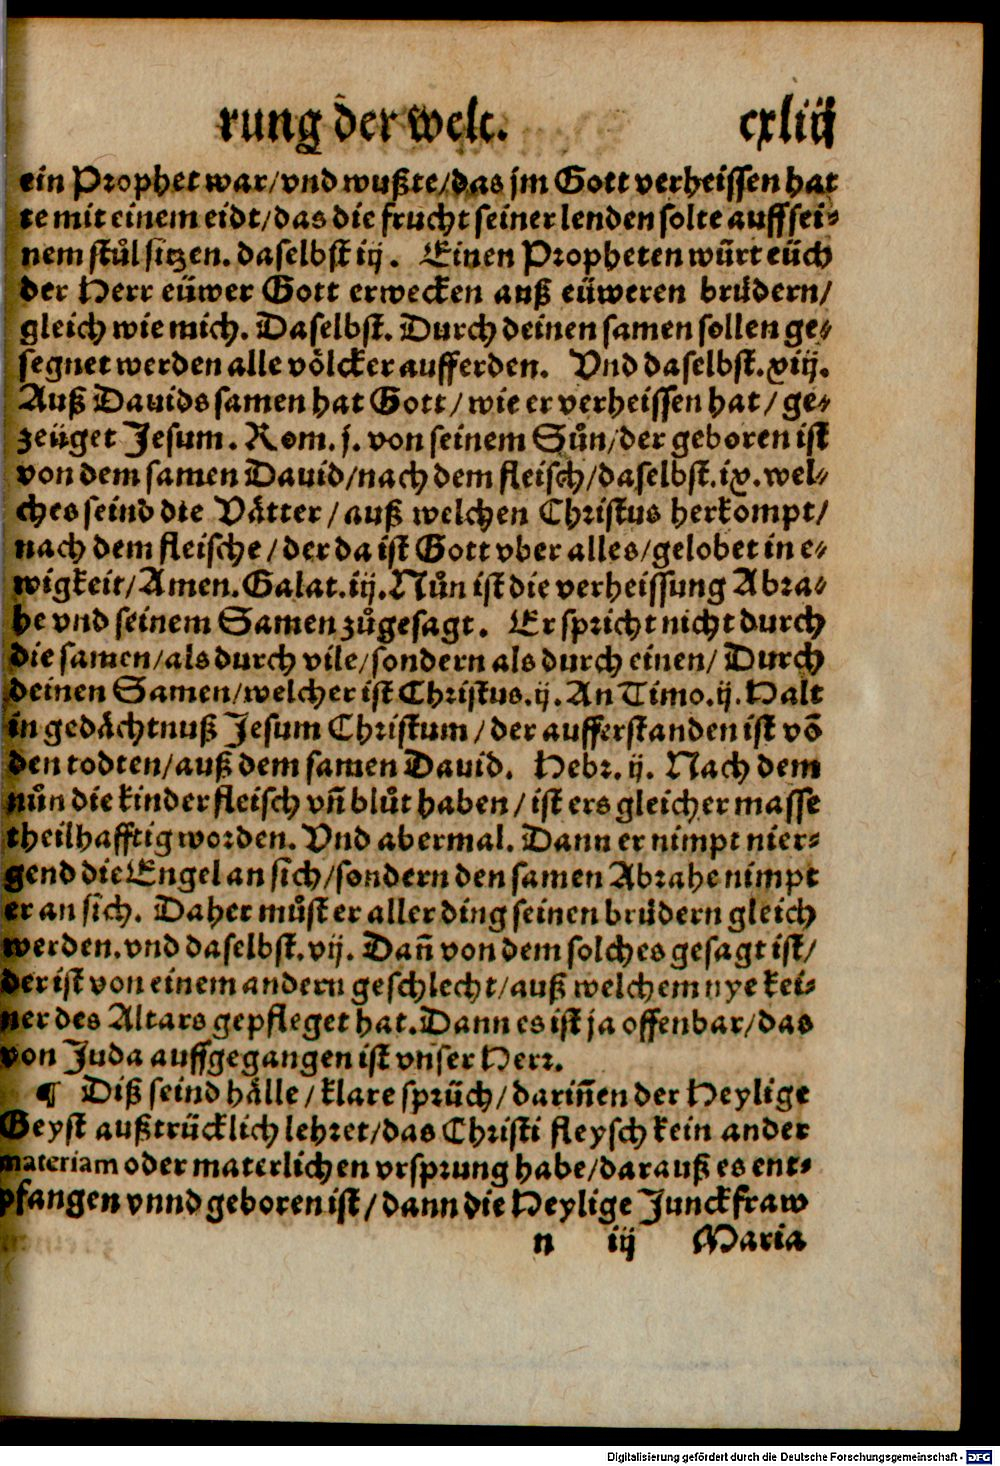 rung der welt. cxliij
ein Prophet war/vnd wußte/das jm Gott verheissen hat
te mit einem eidt/das die frucht seiner lenden solte auff sei-
nem stůl sitzen. daselbst iij. Einen Propheten würt eüch
der Herr eüwer Gott erwecken auß eüweren brüdern/
gleich wie mich. Daselbst. Durch deinen samen sollen ge-
segnet werden alle völcker auff erden. Vnd daselbst. xiij.
Auß Dauids samen hat Gott/wie er verheissen hat/ge-
zeüget Jesum. Rom. j. von seinem Sůn/der geboren ist
von dem samen Dauid/nach dem fleisch/daselbst. ix. wel-
ches seind die Vätter/auß welchen Christus herkompt/
nach dem fleische/der da ist Gott vber alles/gelobet in e-
wigkeit/Amen. Galat. iij. Nůn ist die verheissung Abra-
he vnd seinem Samen zůgesagt. Er spricht nicht durch
die samen/als durch vile/sondern als durch einen/Durch
deinen Samen/welcher ist Christus. ij. An Timo. ij. Halt
in gedächtnuß Jesum Christum/der aufferstanden ist võ
den todten/auß dem samen Dauid. Hebr. ij. Nach dem
nůn die kinder fleisch vñ blůt haben/ist ers gleicher masse
theilhafftig worden. Vnd abermal. Dann er nimpt nier-
gend die Engel an sich/sondern den samen Abrahe nimpt
er an sich. Daher můst er aller ding seinen brüdern gleich
werden. vnd daselbst. vij. Dañ von dem solches gesagt ist/
der ist von einem andern geschlecht/auß welchem nye kei-
ner des Altars gepfleget hat. Dann es ist ja offenbar/das
von Juda auffgegangen ist vnser Herr.
¶ Diß seind hälle/klare sprüch/dariñen der Heylige
Geyst außtrücklich lehret/das Christi fleysch kein ander
materiam oder materlichen vrsprung habe/darauß es ent-
pfangen vnnd geboren ist/dann die Heylige Junckfraw
n iij Maria
Digitalisierung gefördert durch die Deutsche Forschungsgemeinschaft - DFG